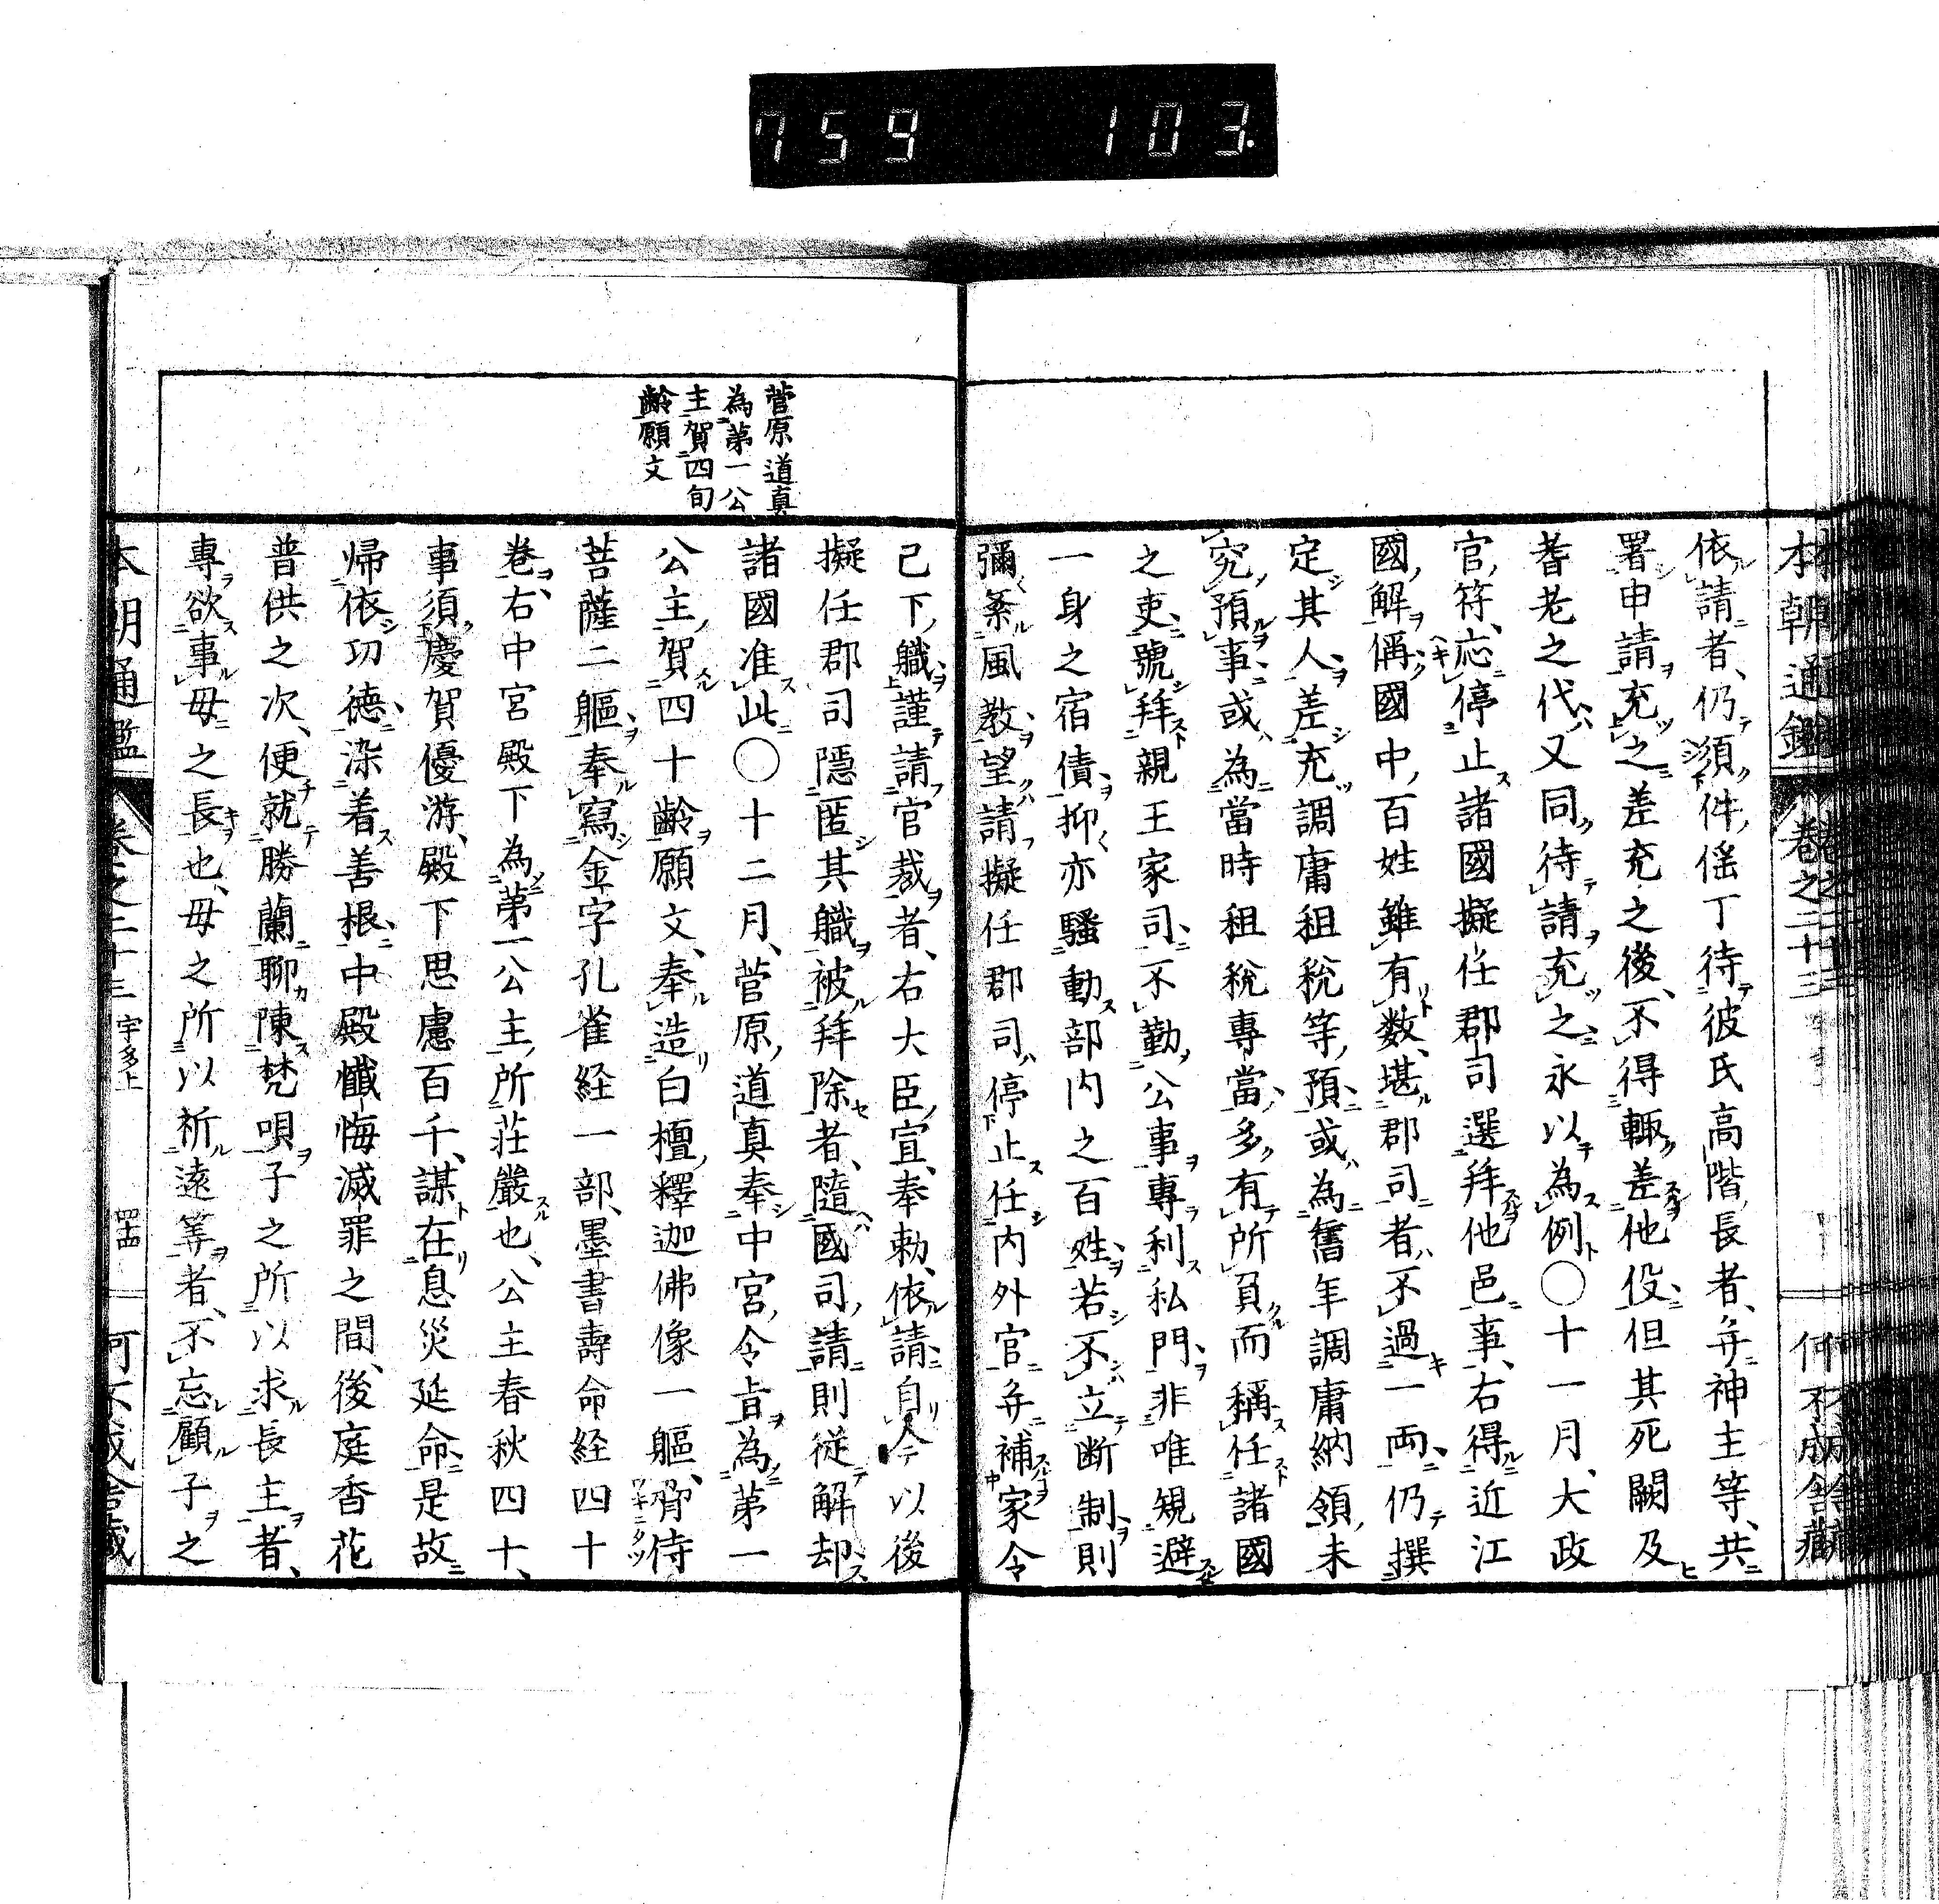 759 103.
本朝通鑑 卷之二十三
何不成舍藏
依請者、仍須件、傜丁待彼氏高階、長者、并神主等、共
署申請充之差充之後、不得輙差他役、但其死闕及
耆老之代、又同待請充之、永以為例〇十一月、大政
官、符、応停止諸國擬任郡司選拜他邑事、右得近江
國、解偁國中、百姓雖有数、堪郡司者、不過一両、仍撰
定其人差充調庸租税等、預或為舊年調庸納領、未
究預事或為當時租税專當、多有所負而稱任諸國
之吏、號拜親王家司、不勤公事專利私門、非唯規避
一身之宿債抑亦騒動部内之百姓若不立断制則
彌紊風教望請擬任郡司停止任内外官并補家令
菅原道真
為第一公
主賀四旬
齢願文
已下職謹請官裁者、右大臣、宣、奉勅、依請自今以後
擬任郡司隠匿其職被拜除者、隨國司請則従解却
諸國准此〇十二月、菅原道真奉中宮、令旨為第一
公主、賀四十齢願文、奉造白檀釋迦佛像一軀、脅侍
菩薩二軀奉寫金字孔雀経一部、墨書壽命経四十
卷、右中宮殿下為第一公主、所荘嚴也、公主春秋四十、
事須慶賀優游、殿下思慮百千、謀在息災延命、是故
帰依功徳、染着善根、中殿懺悔滅罪之間、後庭香花
普供之次、便就勝蘭聊陳梵唄子之所以求長主者、
專欲事母之長也、母之所以祈遠等者、不忘顧子之
本朝通鑑 卷之二十三 宇多上 四十四